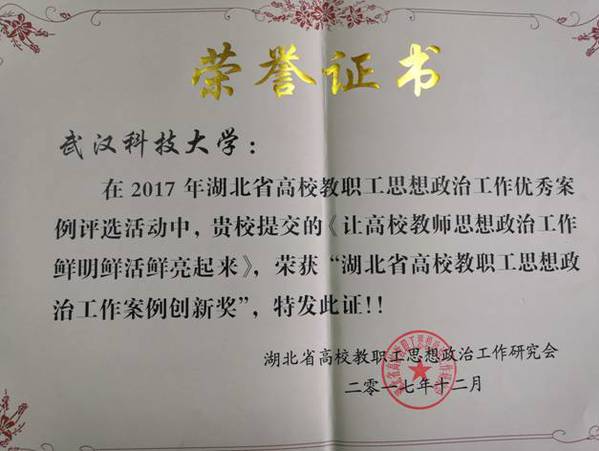 荣誉证书
武汉科技大学：
在2017年湖北省高校教职工思想政治工作优秀案
例评选活动中，贵校提交的《让高校教师思想政治工作
鲜明鲜活鲜亮起来》，荣获“湖北省高校教职工思想政
治工作案例创新奖”，特发此证！！
湖北省高校教职工思想政治工作研究会
二零一七年十二月